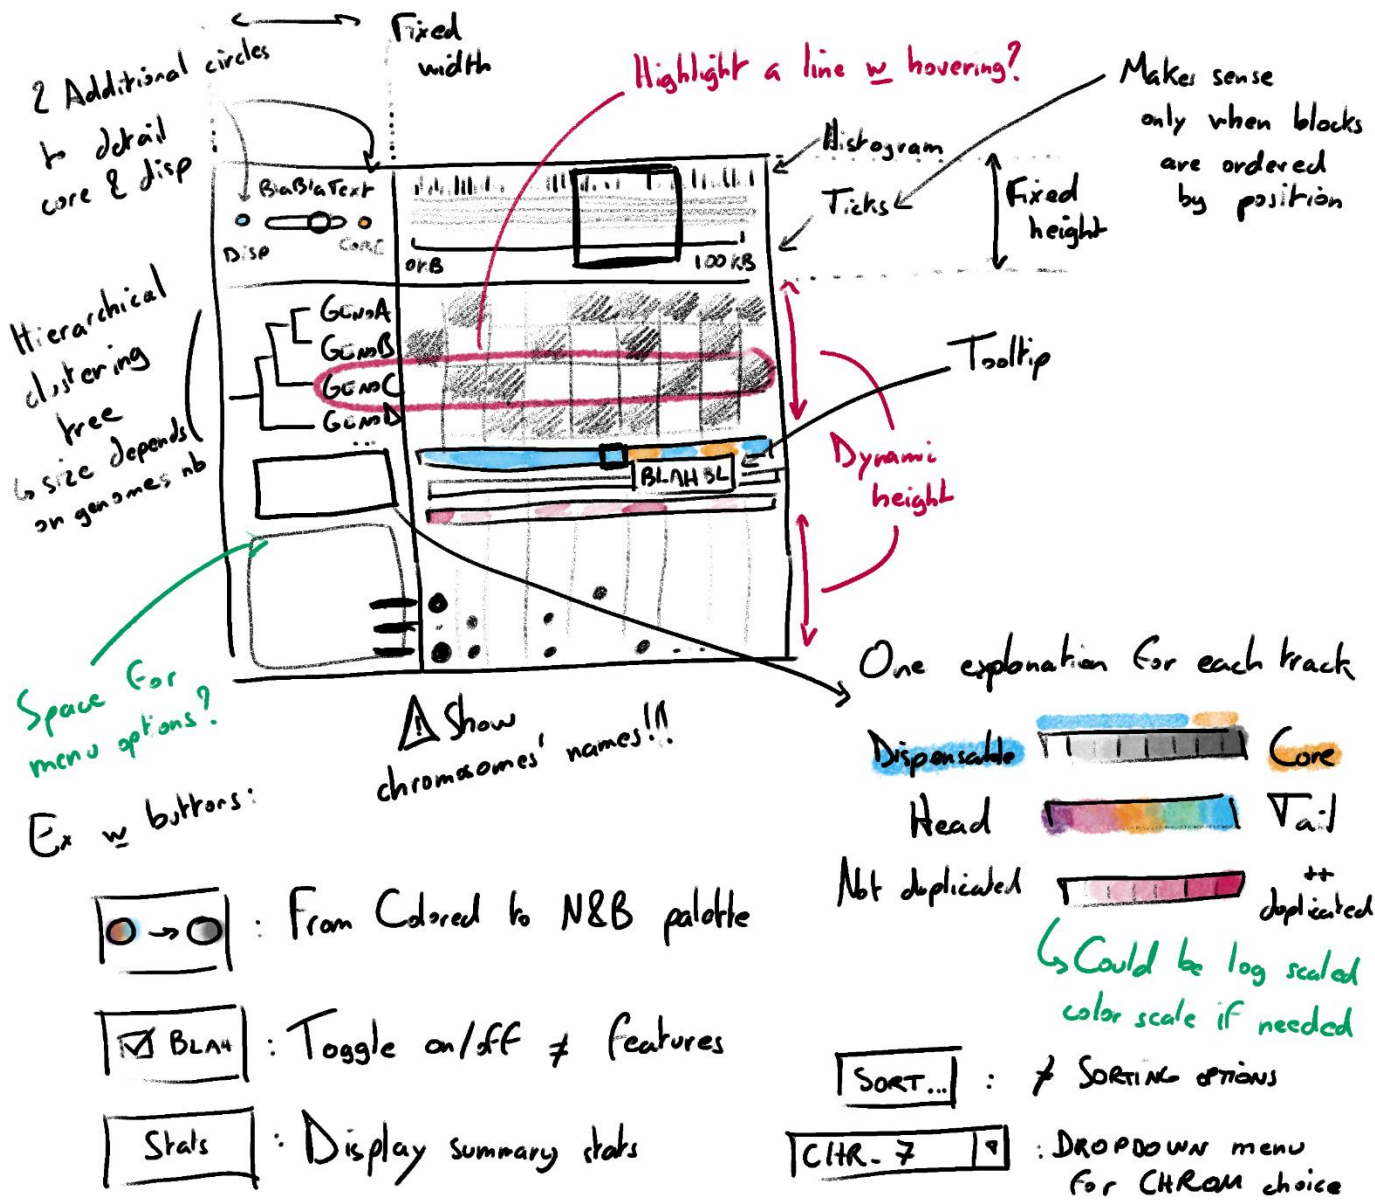 Fixed
width
2 Additional circles
to detail
core & disp
Highlight a line w hovering?
Makes sense
only when blocks
are ordered
by position
Histogram
Ticks
Fixed
height
BlaBlaText
Disp
CORE
0KB
100KB
Hierarchical
clustering
tree
↳ size depends
on genomes nb
GENOA
GENOB
GENOC
GENOD
...
Tooltip
BLAH BL
Dynamic
height
Space for
menu options?
⚠ Show
chromosomes' names!!
One explanation for each track
Dispensable
Core
Head
Tail
Not duplicated
++
duplicated
↳ Could be log scaled
color scale if needed
Ex w buttons:
→ : From Colored to N&B palette
☑ BLAH : Toggle on/off ≠ features
Stats : Display summary stats
SORT... : ≠ SORTING OPTIONS
CHR_7 : DROPDOWN menu
for CHROM choice